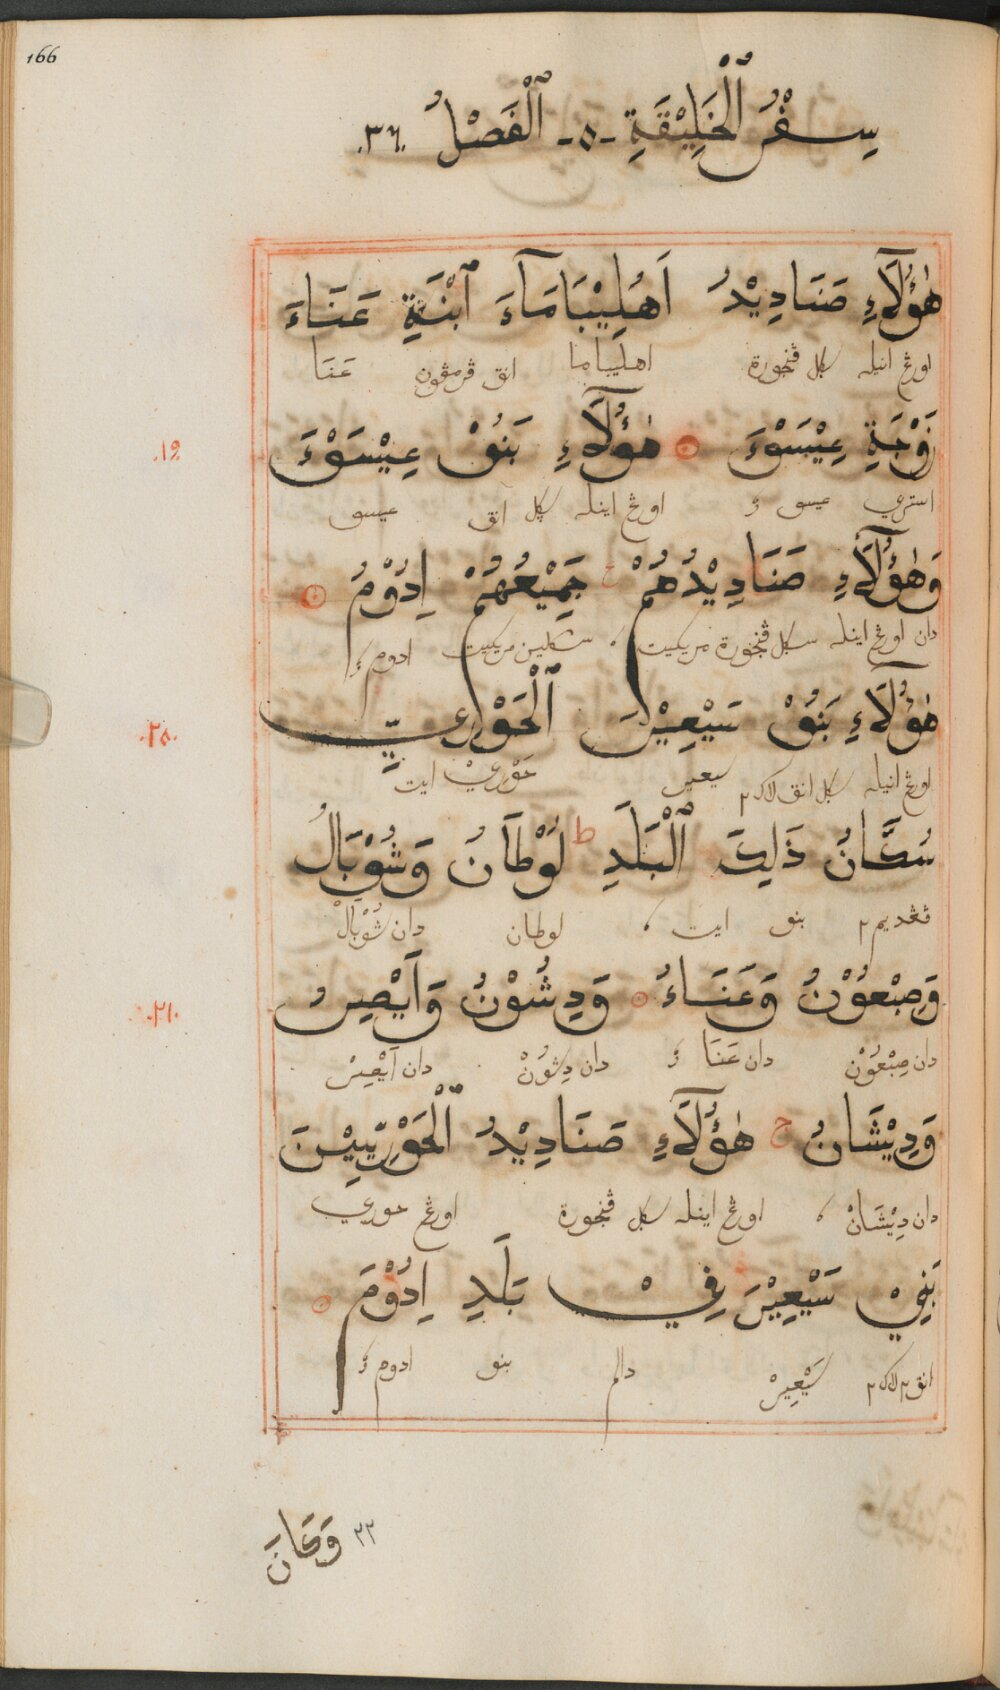 166
سِفْرُ ٱلْخَلِيْقَةِ -٥- ٱلْفَصْلُ .٣٦.
هٰؤُلَآءِ صَنَادِيْدُ اَهُلِيْبَامَآءَ ٱبْنَةِ عَنَاءَ
اورڠ اينله سكل ڤڠجورة اهليباما انق ڤرمڤون عَنَا
زَوْجَةِ عِيْسَوْءَ ۝ هٰؤُلَآءِ بَنُوْ عِيْسَوْءَ
.١٩.
استري عيسو اورڠ اينله سكل انق عيسو
وَهٰؤُلَآءِ صَنَادِيْدُهُمْ ج جَمِيْعُهُمْ اِدُوْمُ ۝
دان اورڠ اينله سكل ڤڠجورة مريكيت، سكلين مريكيت ادوم
هٰؤُلَآءِ بَنُوْ سَيْعِيْرَ ٱلْحَوْرِيِّ
.٢٠.
اورڠ اينله سكل انق لاك٢ سيعير حَوْرِيْ ايت
سُكَّانُ ذَلِكَ ٱلْبَلَدِ ط لُوْطَانُ وَشُوْبَالُ
ڤڠديم٢ بنو ايت، لوطان دان شُوْبَالْ
وَصِبْعُوْنُ وَعَنَاءُ ۝ وَدِشُوْنُ وَآيْصِرُ
.٢١.
دان صِبْعُوْن دان عَنَا دان دِشُوْنْ دان آيْصِرْ
وَدِيْشَانُ ج هٰؤُلَآءِ صَنَادِيْدُ ٱلْحَوْرِيِّيْنَ
دان دِيْشَانْ، اورڠ اينله سكل ڤڠجورة اورڠ حوري
بَنِيْ سَيْعِيْرَ فِيْ بَلَدِ اِدُوْمَ ۝
انق٢ لاك٢ سَيْعِيرْ دالم بنو ادوم
٢٢ وَكَانَ